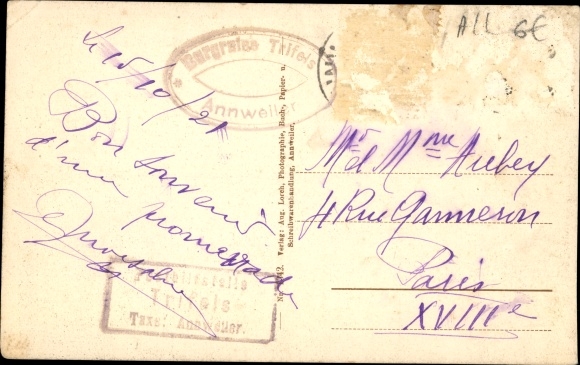 Le 15/10/21
Bon souvenir
d'une promenade
Burgruine Trifels
Annweiler
Posthilfstelle
Trifels
Taxe: Annweiler.
Verlag: Aug. Lorch, Photographie, Buch-, Papier- u.
Schreibwarenhandlung, Annweiler.
All 6€
Mr et Mme Aubey
4 Rue Ganneron
Paris
XVIIIe